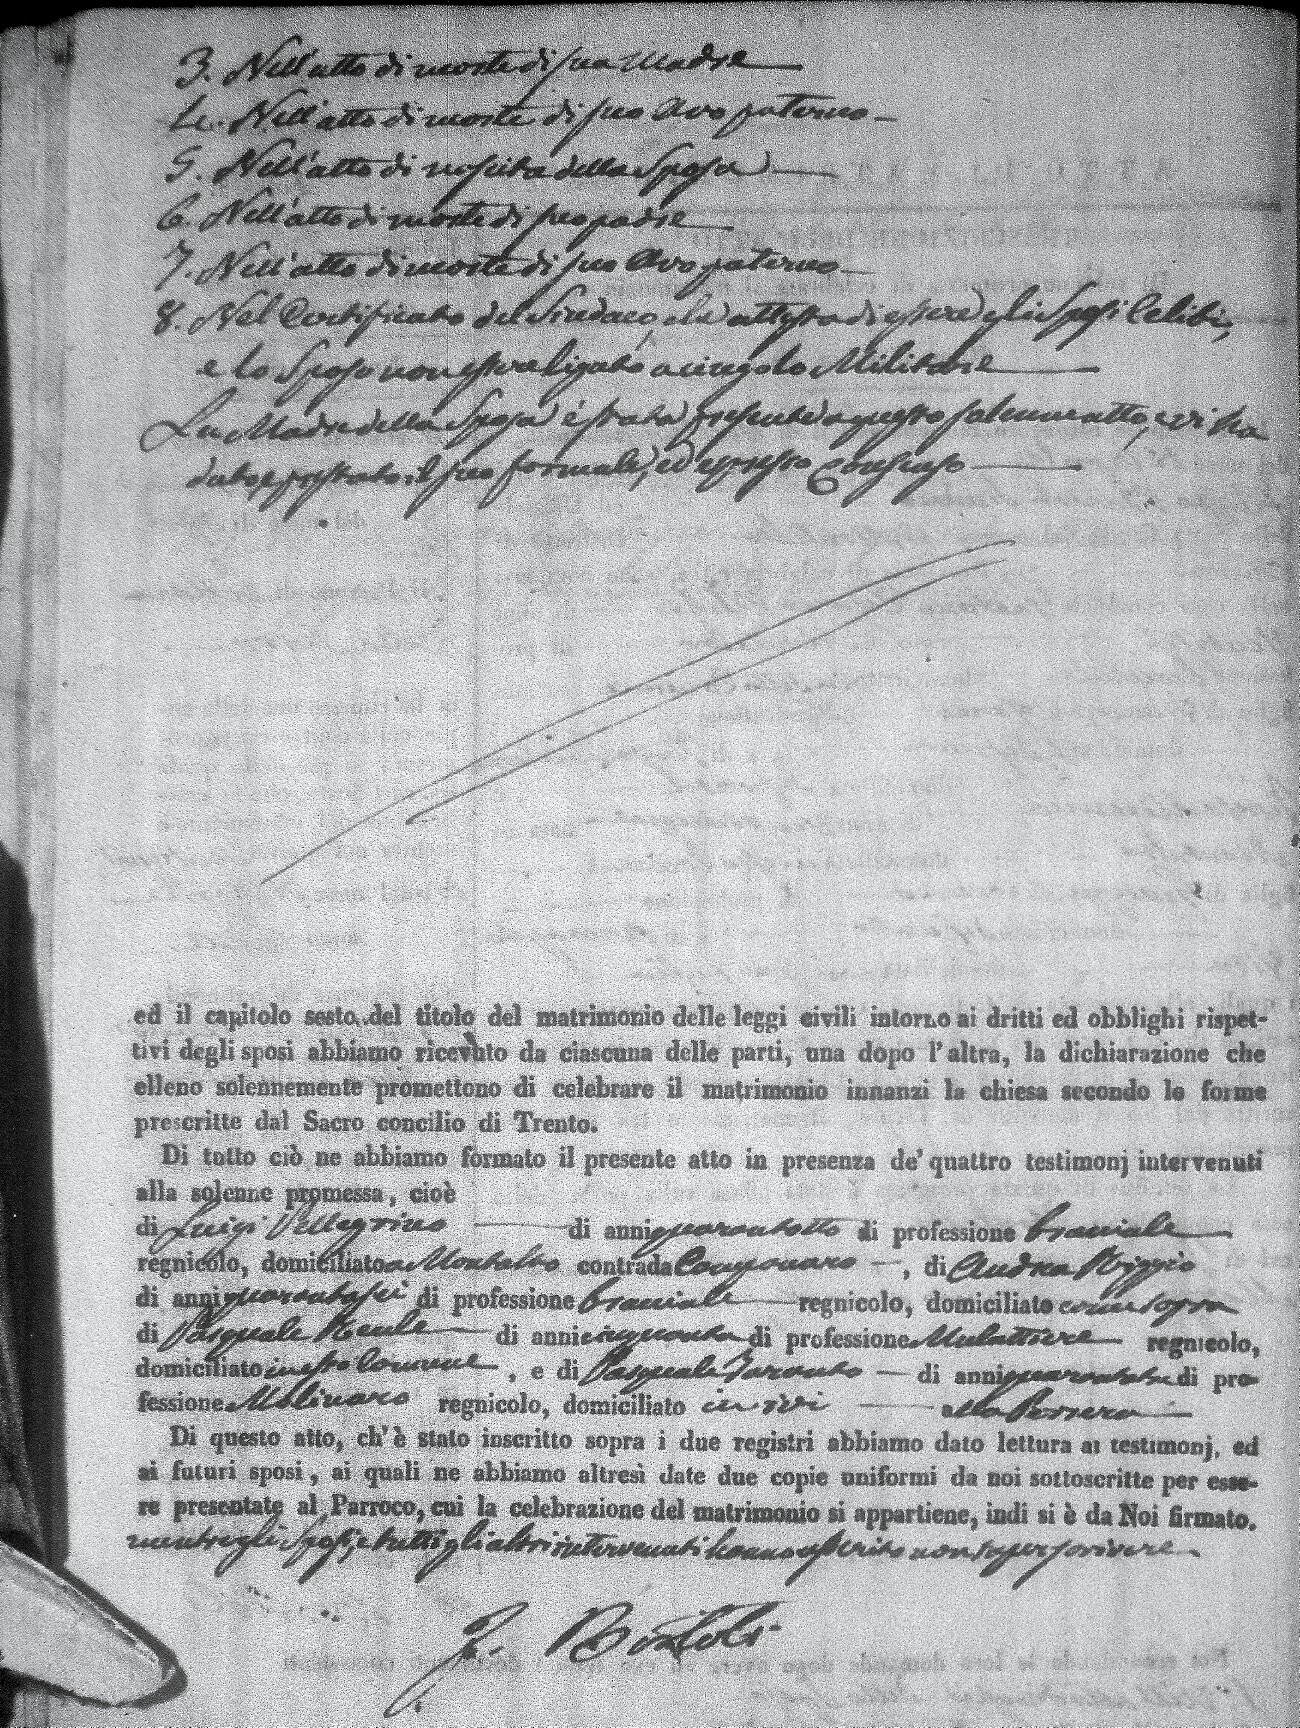 3. Nell'atto di morte di sua Madre
4. Nell'atto di morte di suo Avo paterno
5. Nell'atto di nascita della Sposa
6. Nell'atto di morte di suo padre
7. Nell'atto di morte di suo Avo paterno
8. Nel Certificato del Sindaco, che attesta di essere gli Sposi Celibi,
e lo Sposo non essere ligato a cingolo Militare
La Madre della Sposa è stata presente a questo solenne atto, e vi ha
dato, e prestato il suo formale, ed espresso Consenso
ed il capitolo sesto del titolo del matrimonio delle leggi civili intorno ai dritti ed obblighi rispet-
tivi degli sposi abbiamo ricevuto da ciascuna delle parti, una dopo l'altra, la dichiarazione che
elleno solennemente promettono di celebrare il matrimonio innanzi la chiesa secondo le forme
prescritte dal Sacro concilio di Trento.
Di tutto ciò ne abbiamo formato il presente atto in presenza de' quattro testimonj intervenuti
alla solenne promessa, cioè
di Luigi Pellegrino di anni quarantotto di professione braciale
regnicolo, domiciliato a Montalto contrada , di Andrea Riggio
di anni quarantasei di professione braciale regnicolo, domiciliato come sopra
di Pasquale di anni cinquanta di professione Mulattiere regnicolo,
domiciliato in Comune, e di Pasquale Taranto di anni di pro-
fessione Molinaro regnicolo, domiciliato ivi alla
Di questo atto, ch'è stato inscritto sopra i due registri abbiamo dato lettura ai testimonj, ed
ai futuri sposi, ai quali ne abbiamo altresì date due copie uniformi da noi sottoscritte per esse-
re presentate al Parroco, cui la celebrazione del matrimonio si appartiene, indi si è da Noi firmato.
mentre gli Sposi, e tutti gli altri intervenuti hanno asserito non saper scrivere